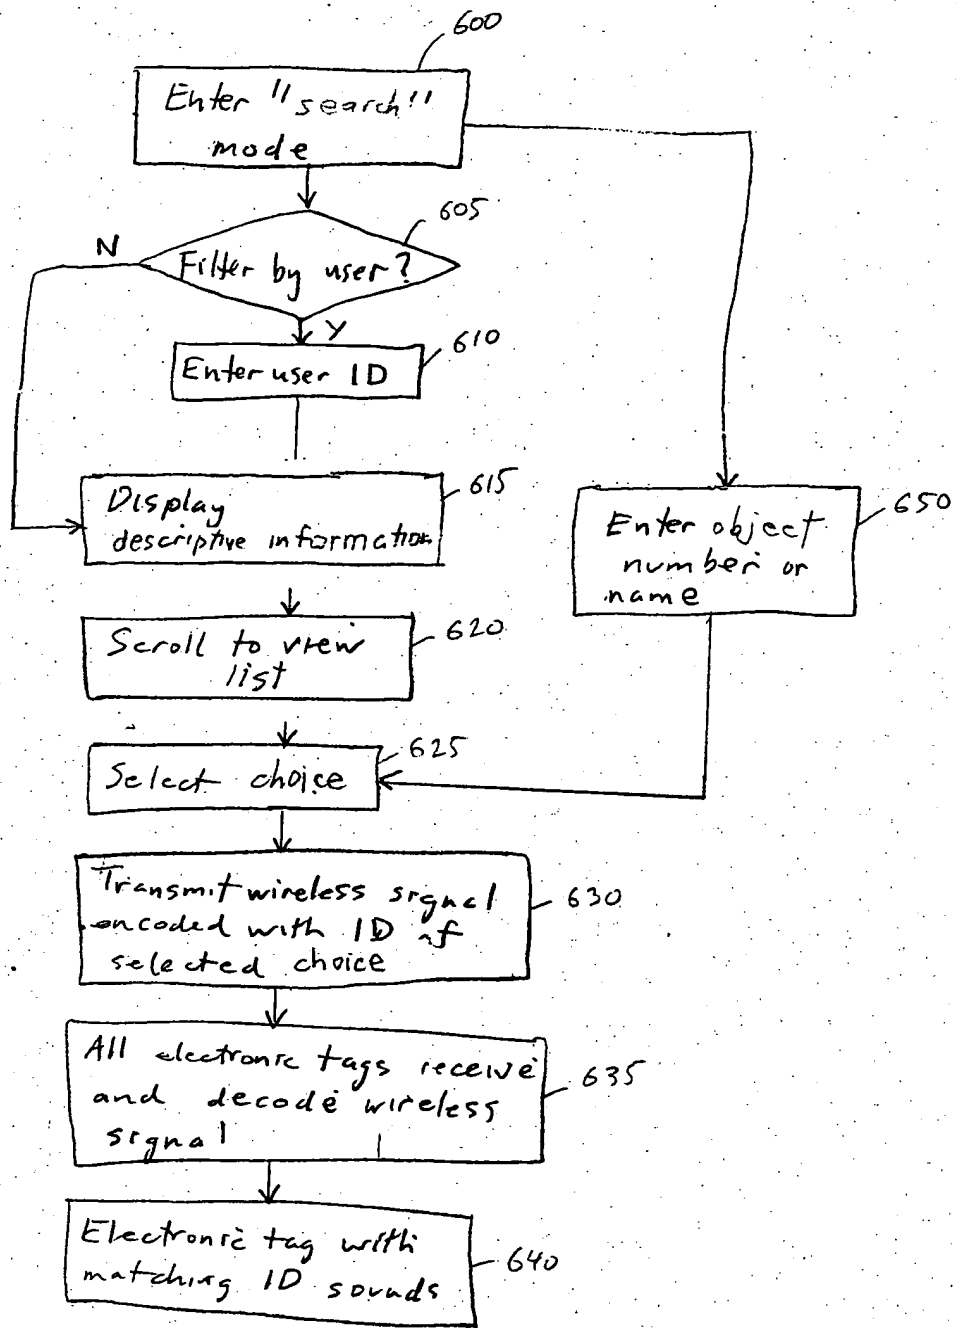 600
Enter "search"
mode
605
N
Filter by user?
Y
610
Enter user ID
615
Display
descriptive information
650
Enter object
number or
name
620
Scroll to view
list
625
Select choice
630
Transmit wireless signal
encoded with ID of
selected choice
635
All electronic tags receive
and decode wireless
signal
640
Electronic tag with
matching ID sounds